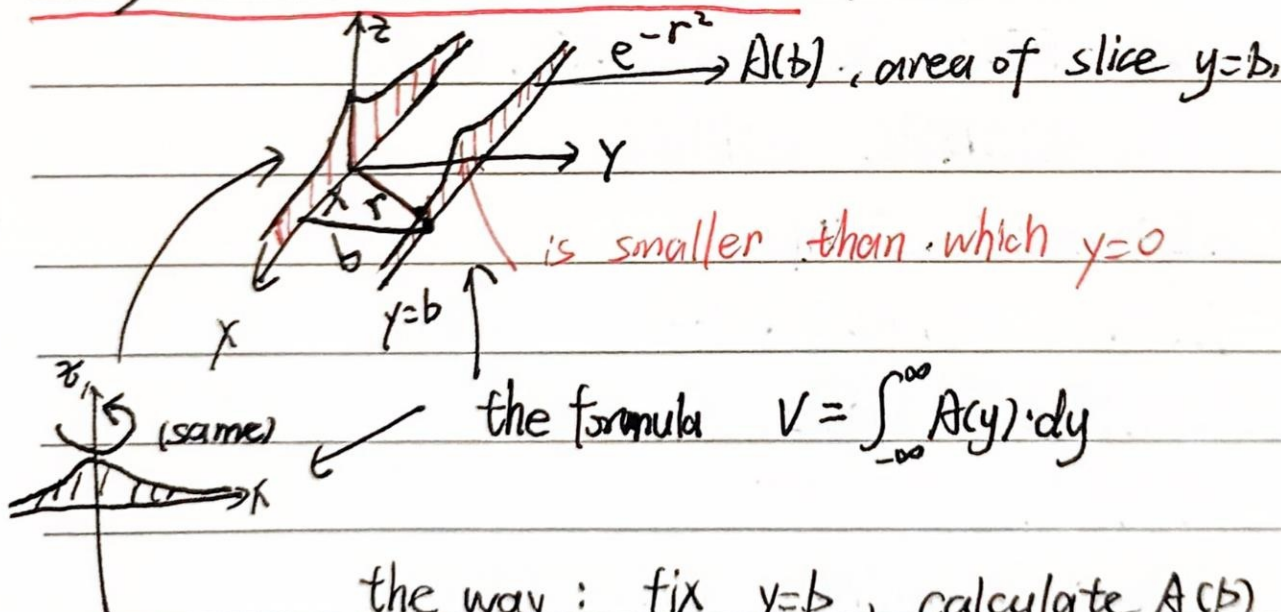 z
e^{-r^2} → A(b), area of slice y=b,
Y
x r
b
is smaller than which y=0
y=b
X
z
(same)
the formula V = ∫_{-∞}^{∞} A(y)·dy
x
the way : fix y=b, calculate A(b)